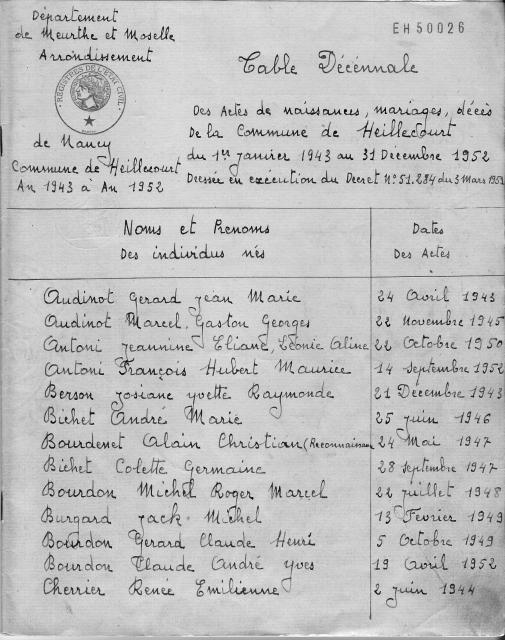 Département
de Meurthe et Moselle
Arrondissement
REGISTRES DE L'ETAT CIVIL
de Nancy
Commune de Heillecourt
An 1943 à An 1952
EH50026
Table Décennale
Des Actes de naissances, mariages, décès
De la Commune de Heillecourt
du 1er janvier 1943 au 31 Décembre 1952
Dressée en exécution du Decret N° 51.284 du 3 Mars 1951
Noms et Prenoms
Des individus nés
Dates
Des Actes
Audinot Gerard Jean Marie 24 Avril 1943
Audinot Marcel, Gaston Georges 22 Novembre 1945
Antoni Jeannine Eliane, Léonie Aline 22 Octobre 1950
Antoni François Hubert Maurice 14 septembre 1952
Berson Josiane Yvette Raymonde 21 Décembre 1943
Bichet André Marie 25 juin 1946
Bourdenet Alain Christian (Reconnaissance 24 Mai 1947
Bichet Colette Germaine 28 septembre 1947
Bourdon Michel Roger Marcel 22 juillet 1948
Burgard Jack Michel 13 Février 1949
Bourdon Gerard Claude Henri 5 Octobre 1949
Bourdon Claude André Yves 19 Avril 1952
Cherrier Renée Emilienne 2 juin 1944